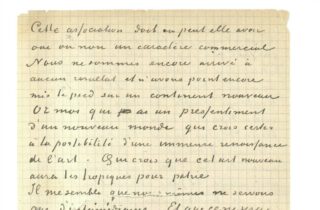 Cette association doit ou peut elle avoir
oui ou non un caractère commercial
Nous ne sommes encore arrivé à
aucun résultat et n'avons point encore
mis le pied sur un continent nouveau
Or moi qui ai un présentiment
d'un nouveau monde qui crois certes
à la possibilité d'une immense renaissance
de l'art. Qui crois que cet art nouveau
aura les tropiques pour patrie
Il me semble que nous mêmes ne servons
que d'intermédiaires. Et que ce ne